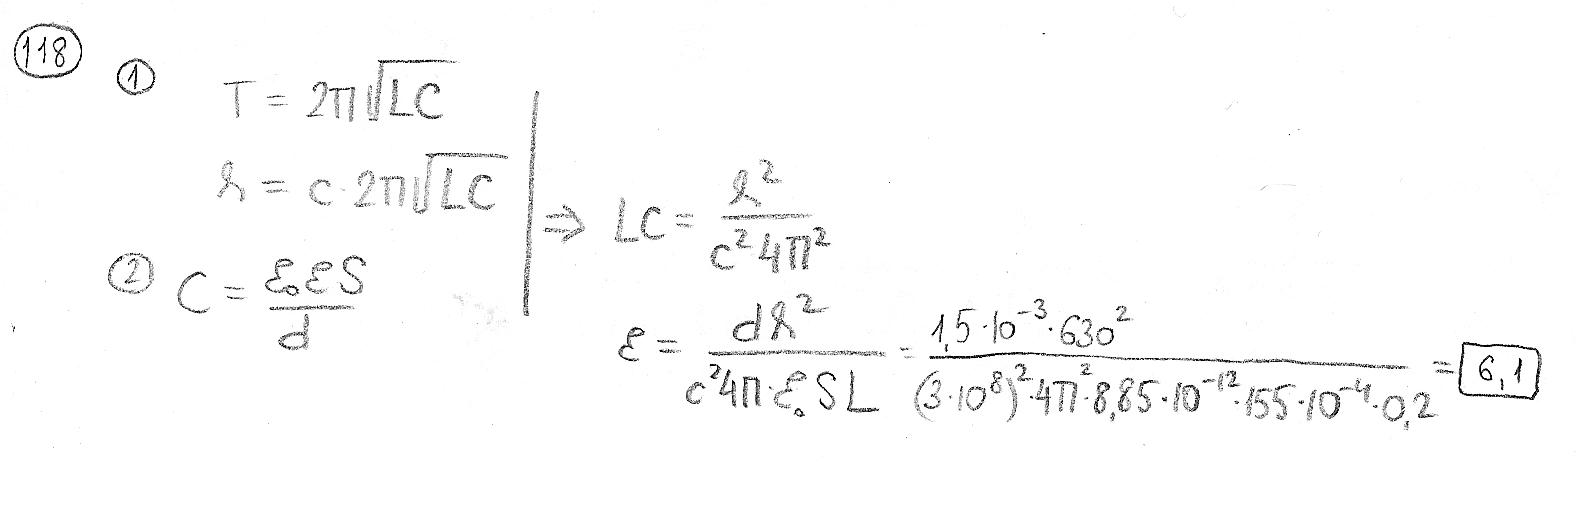 118
① T = 2π√LC
λ = c·2π√LC
⇒ LC = λ² / c²4π²
② C = ε₀εS / d
ε = dλ² / c²4π·ε₀SL = 1,5·10⁻³·630² / (3·10⁸)²·4π²·8,85·10⁻¹²·155·10⁻⁴·0,2 = 6,1